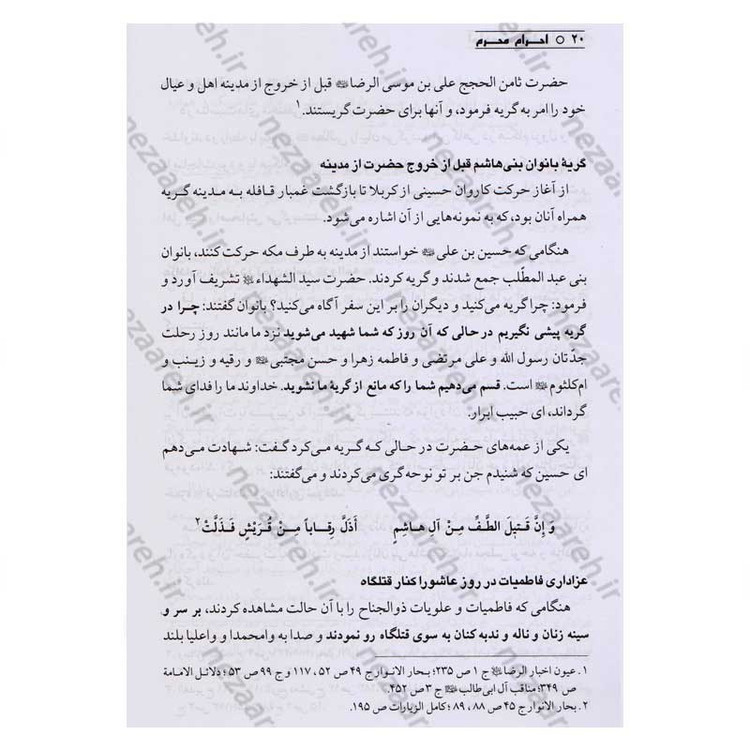 ۲۰ ○ احرام محرم
حضرت ثامن الحجج علی بن موسی الرضا﵇ قبل از خروج از مدینه اهل و عیال
خود را امر به گریه فرمود، و آنها برای حضرت گریستند.۱
گریهٔ بانوان بنی‌هاشم قبل از خروج حضرت از مدینه
از آغاز حرکت کاروان حسینی از کربلا تا بازگشت غمبار قافله به مدینه گریه
همراه آنان بود، که به نمونه‌هایی از آن اشاره می‌شود.
هنگامی که حسین بن علی﵇ خواستند از مدینه به طرف مکه حرکت کنند، بانوان
بنی عبد المطّلب جمع شدند و گریه کردند. حضرت سید الشهداء﵇ تشریف آورد و
فرمود: چرا گریه می‌کنید و دیگران را بر این سفر آگاه می‌کنید؟ بانوان گفتند: چرا در
گریه پیشی نگیریم در حالی که آن روز که شما شهید می‌شوید نزد ما مانند روز رحلت
جدّتان رسول الله و علی مرتضی و فاطمه زهرا و حسن مجتبی﵈ و رقیه و زینب و
ام‌کلثوم﵈ است. قسم می‌دهیم شما را که مانع از گریهٔ ما نشوید. خداوند ما را فدای شما
گرداند، ای حبیب ابرار.
یکی از عمه‌های حضرت در حالی که گریه می‌کرد گفت: شهادت می‌دهم
ای حسین که شنیدم جن بر تو نوحه‌گری می‌کردند و می‌گفتند:
وَ إِنَّ قَتِیلَ الطَّفِّ مِنْ آلِ هاشِمٍ أَذَلَّ رِقاباً مِنْ قُرَیْشٍ فَذَلَّتْ۲
عزاداری فاطمیات در روز عاشورا کنار قتلگاه
هنگامی که فاطمیات و علویات ذوالجناح را با آن حالت مشاهده کردند، بر سر و
سینه زنان و ناله و ندبه کنان به سوی قتلگاه رو نمودند و صدا به وامحمدا و واعلیا بلند
۱. عیون اخبار الرضا﵇ ج ۱ ص ۲۳۵؛ بحار الانوار ج ۴۹ ص ۵۲ ، ۱۱۷ و ج ۹۹ ص ۵۳؛ دلائل الامامة
ص ۳۴۹؛ مناقب آل ابی‌طالب﵇ ج ۳ ص ۴۵۲.
۲. بحار الانوار ج ۴۵ ص ۸۸ ، ۸۹؛ کامل الزیارات ص ۱۹۵.
nezaareh.ir